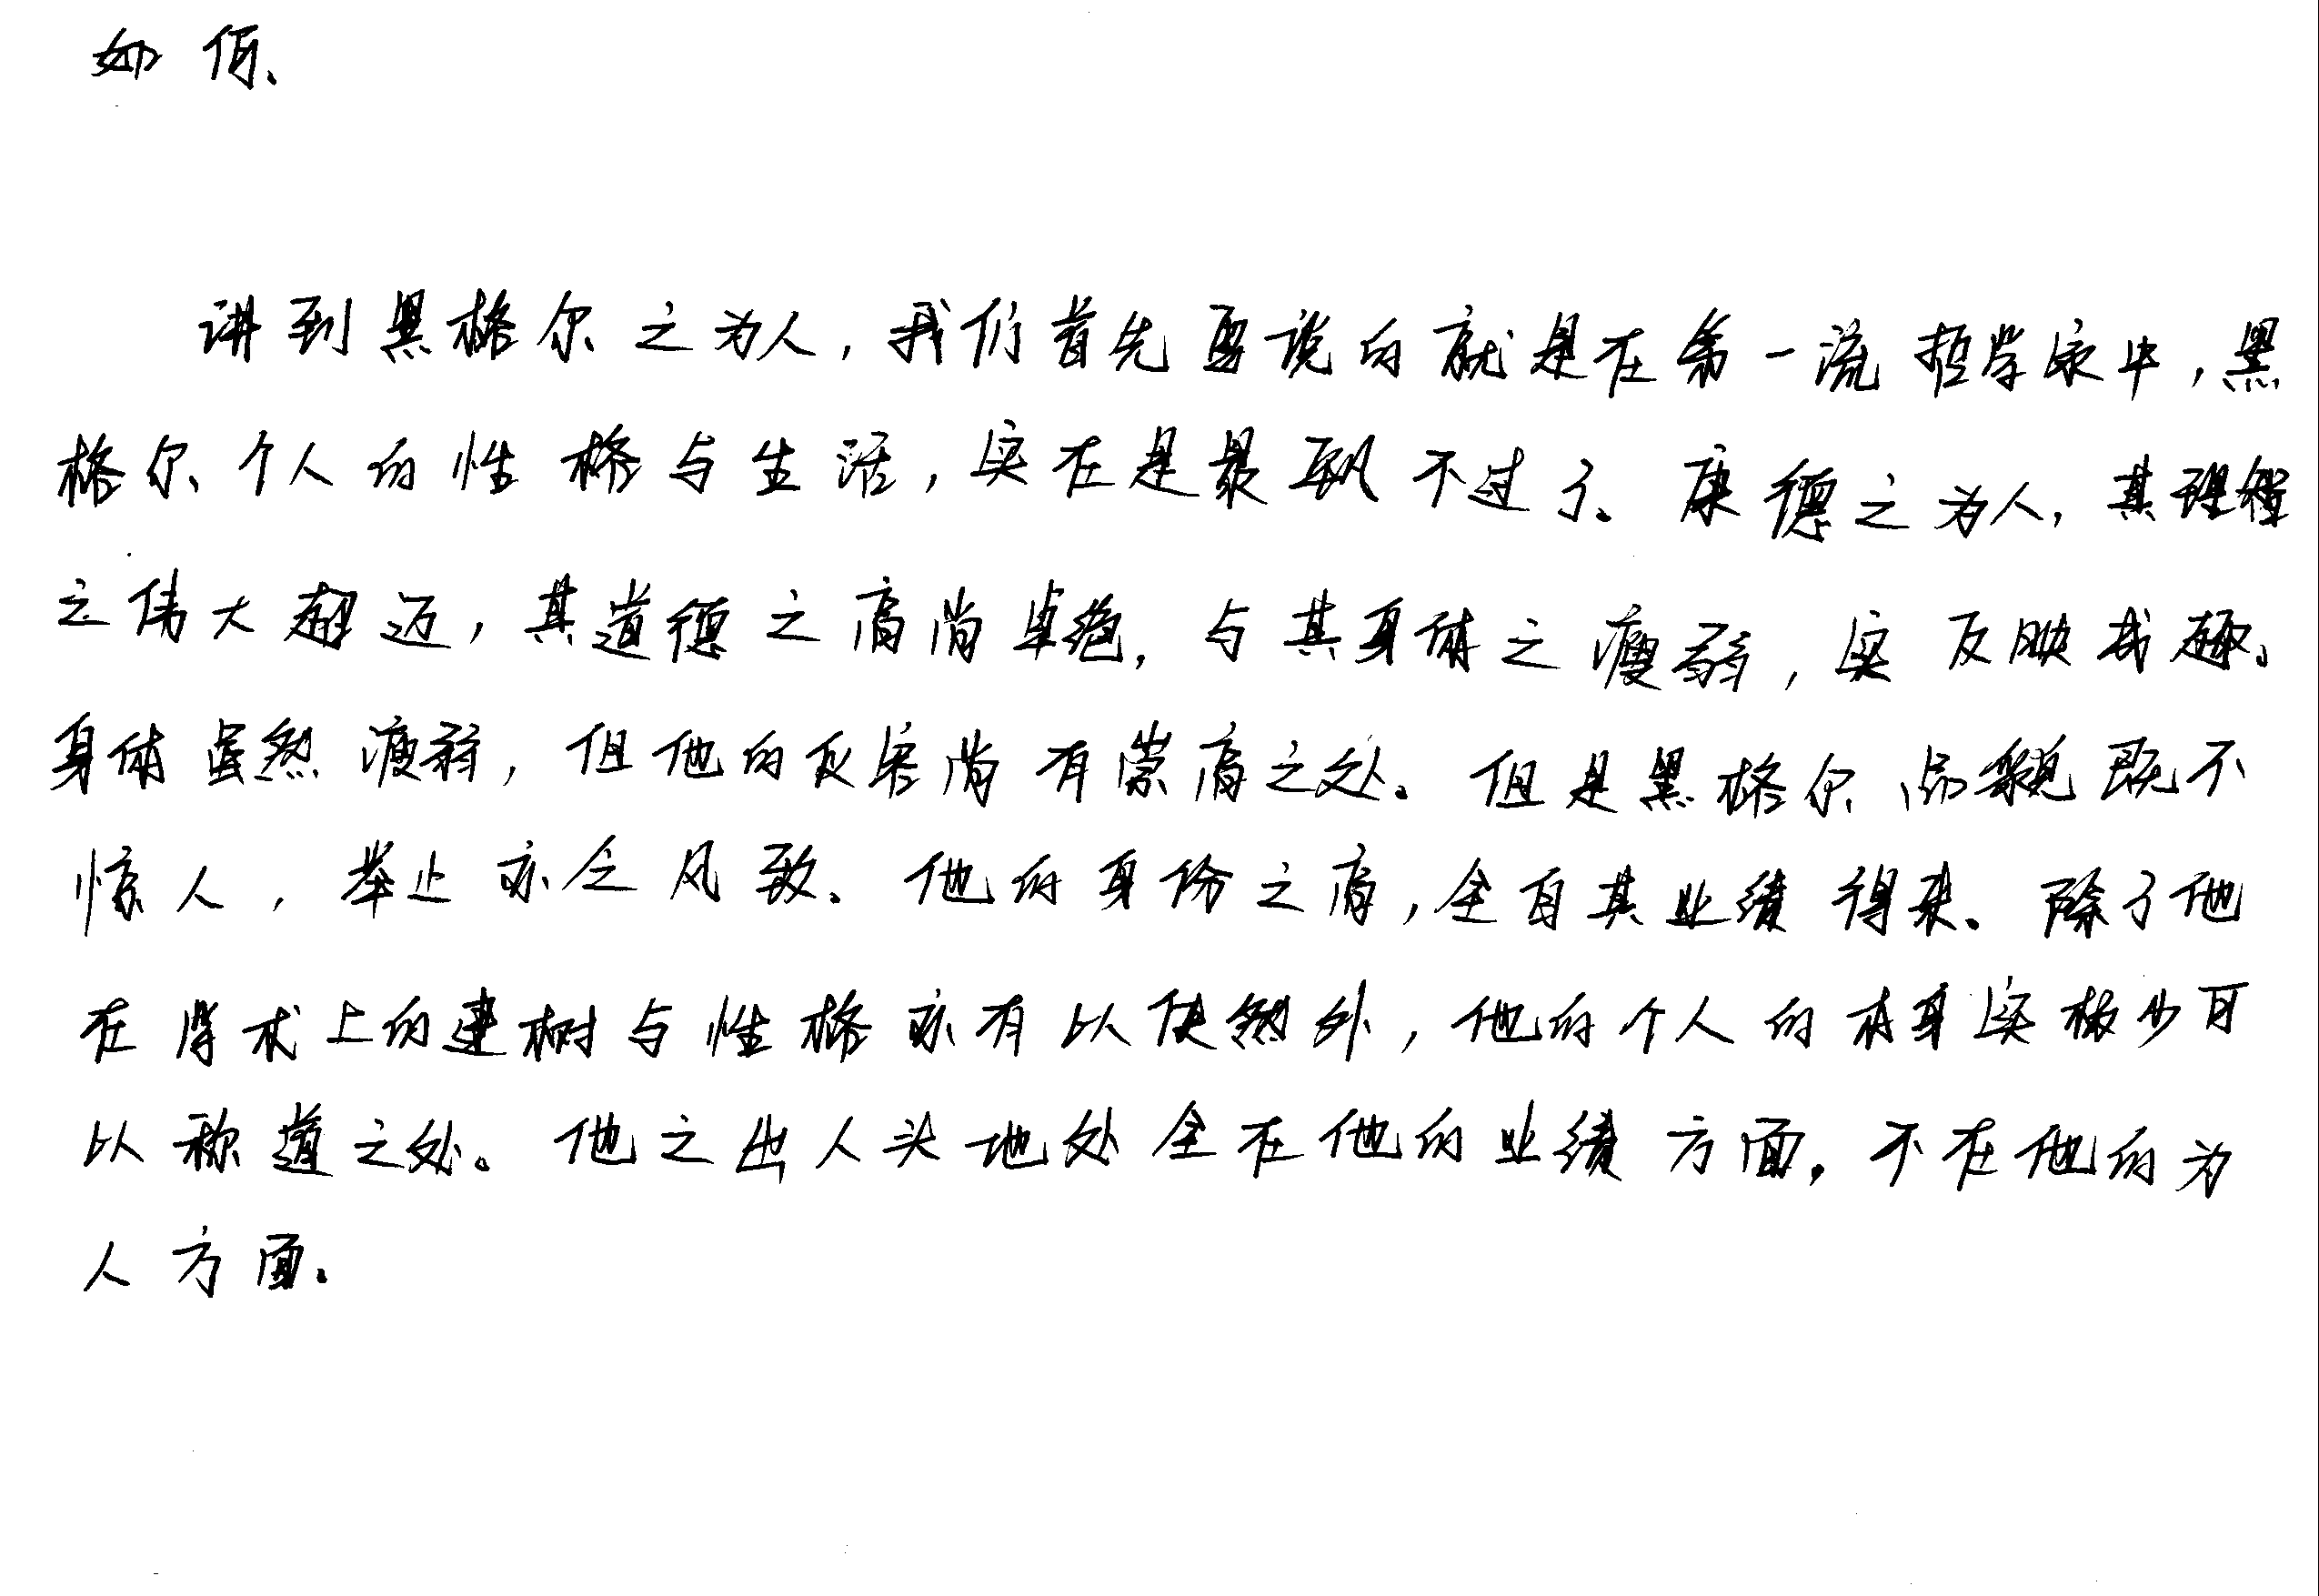 如佰、
讲到黑格尔之为人，我们首先要说的就是在第一流哲学家中，黑
格尔个人的性格与生活，实在是最飘不过了。康德之为人，其理智
之伟大超迈，其道德之高尚卓绝，与其身体之瘦弱，实反映成趣。
身体虽然瘦弱，但他的灰容尚有崇高之处。但是黑格尔品貌既不
惊人，举止亦乏风致。他的身份之高，全自其业绩得来。除了他
在学术上的建树与性格亦有以使然外，他的个人的本身实极少可
以称道之处。他之出人头地处全在他的业绩方面，不在他的为
人方面。